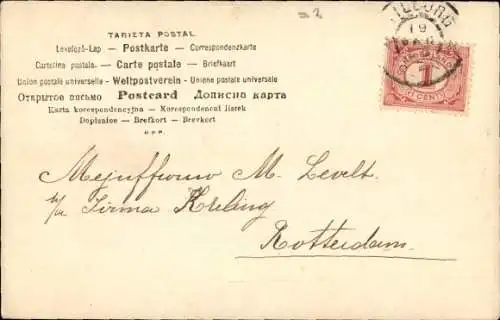 TARIETA POSTAL
Levelező-Lap — Postkarte — Correspondenzkarte
Cartolina postale. — Carte postale — Briefkaart
Union postale universelle — Weltpostverein — Unione postale universale
Открытое письмо Postcard Дописна карта
Karta korespondencyjna — Korespondenční lístek
Dopisnice — Brefkort — Brevkort
TILBURG
19
1
CENT
Mejuffrouw M. Levelt.
p/a Firma Kreling
Rotterdam.